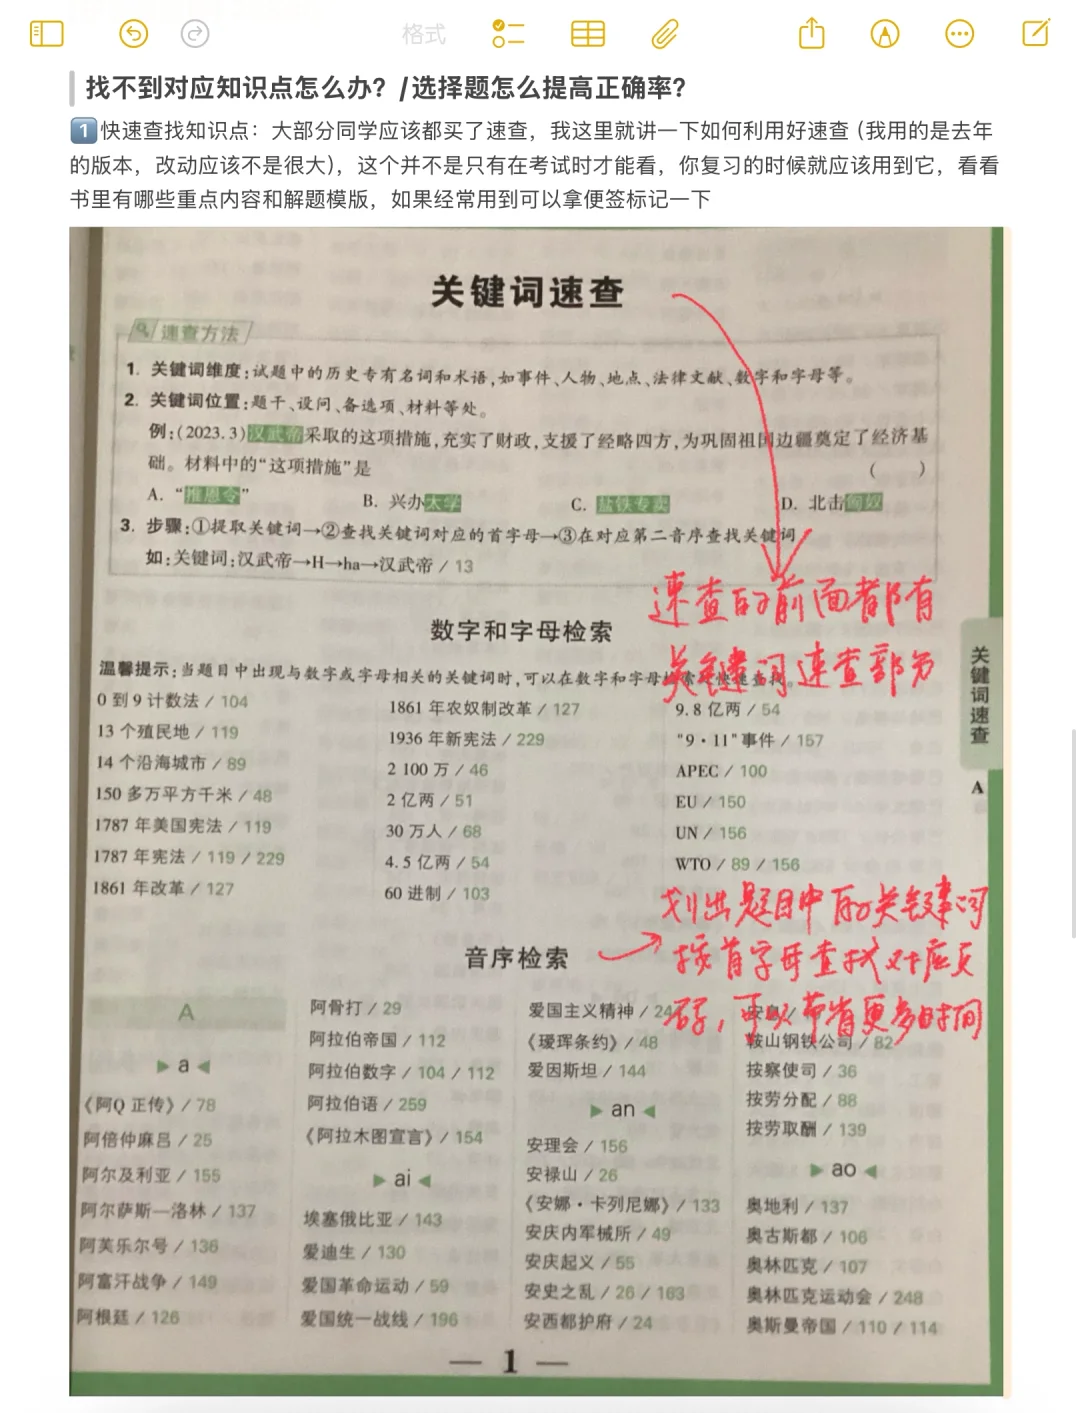 格式
找不到对应知识点怎么办？/选择题怎么提高正确率？
1 快速查找知识点：大部分同学应该都买了速查，我这里就讲一下如何利用好速查（我用的是去年
的版本，改动应该不是很大），这个并不是只有在考试时才能看，你复习的时候就应该用到它，看看
书里有哪些重点内容和解题模版，如果经常用到可以拿便签标记一下
关键词速查
速查方法
1. 关键词维度：试题中的历史专有名词和术语，如事件、人物、地点、法律文献、数字和字母等。
2. 关键词位置：题干、设问、备选项、材料等处。
例：(2023.3)汉武帝采取的这项措施，充实了财政，支援了经略四方，为巩固祖国边疆奠定了经济基
础。材料中的“这项措施”是 (    )
A. “推恩令” B. 兴办太学 C. 盐铁专卖 D. 北击匈奴
3. 步骤：①提取关键词→②查找关键词对应的首字母→③在对应第二音序查找关键词
如：关键词：汉武帝→H→ha→汉武帝 / 13
速查的前面都有
关键词速查部分
数字和字母检索
温馨提示：当题目中出现与数字或字母相关的关键词时，可以在数字和字母检索处快速查找。
0 到 9 计数法 / 104
13 个殖民地 / 119
14 个沿海城市 / 89
150 多万平方千米 / 48
1787 年美国宪法 / 119
1787 年宪法 / 119 / 229
1861 年改革 / 127
1861 年农奴制改革 / 127
1936 年新宪法 / 229
2 100 万 / 46
2 亿两 / 51
30 万人 / 68
4.5 亿两 / 54
60 进制 / 103
9.8 亿两 / 54
"9·11"事件 / 157
APEC / 100
EU / 150
UN / 156
WTO / 89 / 156
关键词速查
A
划出题目中的关键词
按首字母查找对应页
码，可以节省更多时间
音序检索
A
▶ a ◀
《阿Q 正传》/ 78
阿倍仲麻吕 / 25
阿尔及利亚 / 155
阿尔萨斯—洛林 / 137
阿芙乐尔号 / 136
阿富汗战争 / 149
阿根廷 / 126
阿骨打 / 29
阿拉伯帝国 / 112
阿拉伯数字 / 104 / 112
阿拉伯语 / 259
《阿拉木图宣言》/ 154
▶ ai ◀
埃塞俄比亚 / 143
爱迪生 / 130
爱国革命运动 / 59
爱国统一战线 / 196
爱国主义精神 / 24
《瑷珲条约》/ 48
爱因斯坦 / 144
▶ an ◀
安理会 / 156
安禄山 / 26
《安娜·卡列尼娜》/ 133
安庆内军械所 / 49
安庆起义 / 55
安史之乱 / 26 / 163
安西都护府 / 24
安息 /
鞍山钢铁公司 / 82
按察使司 / 36
按劳分配 / 88
按劳取酬 / 139
▶ ao ◀
奥地利 / 137
奥古斯都 / 106
奥林匹克 / 107
奥林匹克运动会 / 248
奥斯曼帝国 / 110 / 114
— 1 —